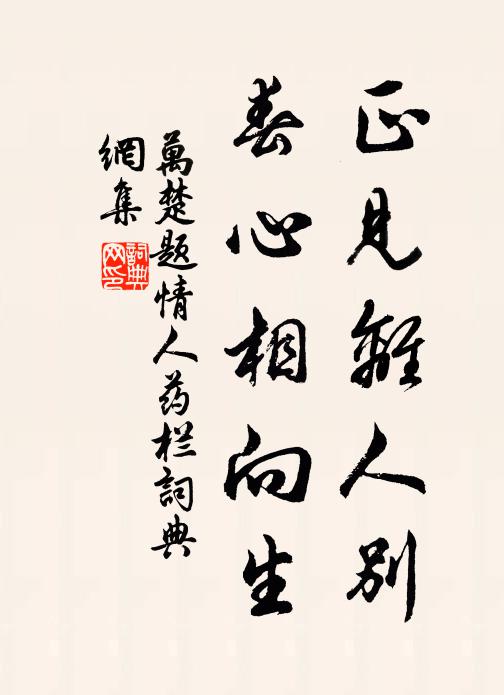 正見離人別
春心相向生
萬楚题情人药栏詞典
網集
詞典网印